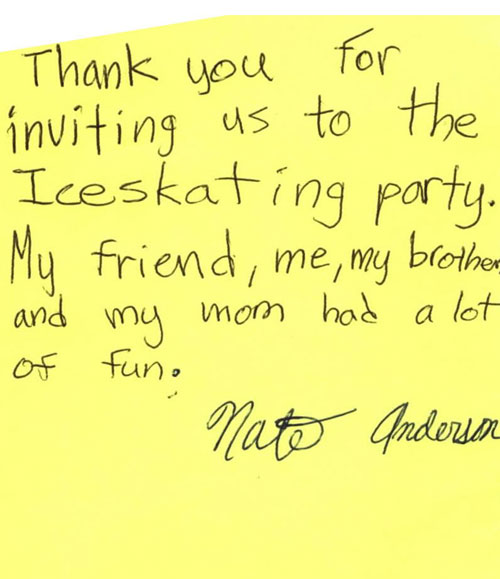 Thank you for
inviting us to the
Iceskating party.
My friend, me, my brother,
and my mom had a lot
of fun.
Nate Anderson